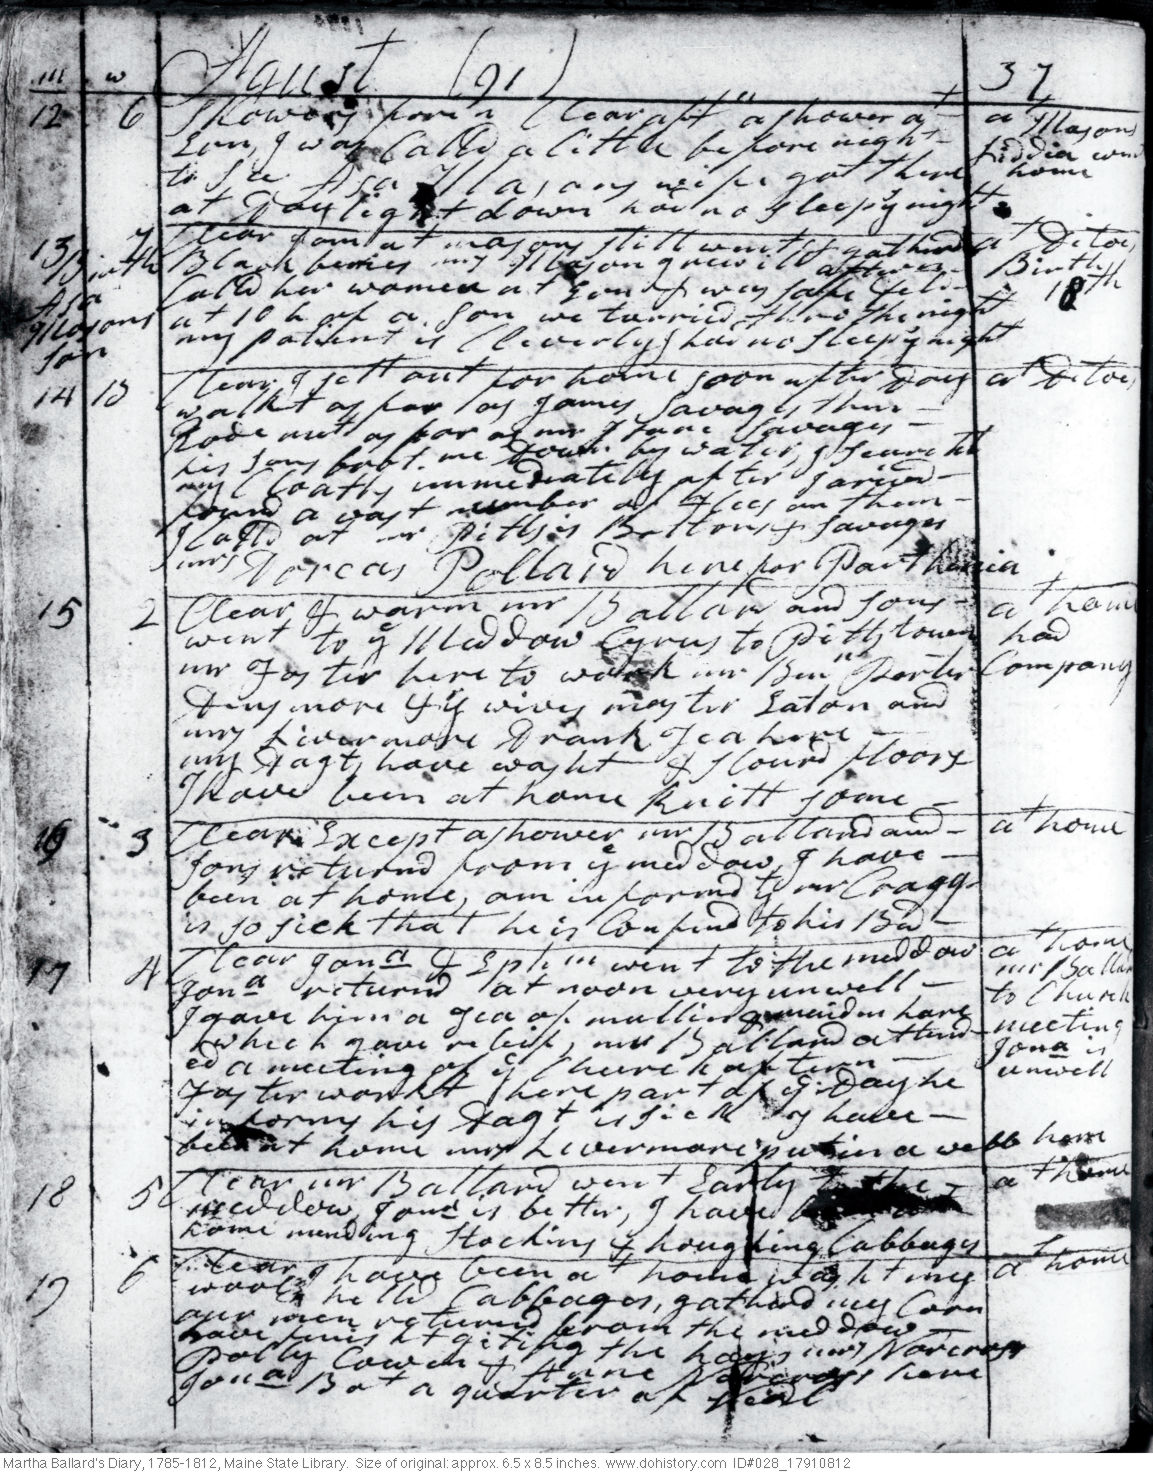 m w Agust (91) 37
12 6 Showers foren Clear aft" a shower at a Masons
Son, I was Calld a little before night Liddia went
to See Asa Masons wife got there home
at Day light down had no sleep ys night
13 7 Clear I am at masons still went & gatherd at Ditoes
Birth Black beries mrs Mason grew ill after Birth
Asa Calld her women at Son & was safe 18th
Masons at 10 h of a Son we tarried thro the night
Son my patient is Cleverly I had no sleep ys night
14 Clear I sett out for home soon after Day at Ditoes
walkt as far as James Savages then
Rode as far as mr Isaac Savages
his sons bort me Down by water, I searcht
my Cloaths immediately after I arivd
found a vast number of Flees on them
I Calld at mr Pitts's Boltons & Savages
mrs Dorcas Pollard here for Parthenia
15 2 Clear & warm mr Ballard and sons at home
went to ye Meddow Cyrus to Pittstown had
mr Foster here to work mr Porter Company
Dinsmore & ye wives master Eaton and
mrs Livermore Drank Tea here
my Dagts have washt & scourd floors
I have been at home Knitt some
16 3 Clear Except a shower mr Ballard and at home
sons returnd from ye meddow, I have
been at home, am informd yt mr Cragg
is so sick that he is Confind to his Bed
17 4 Clear Jona & Ephm went to the meddow at home
Jona returnd at noon very unwell mr Ballard
I gave him a Tea of mullin & maiden hare to Church
which gave releif, mr Ballard attend meeting
ed a meeting of ye Church aftern Jona is
Foster workt here part of ye Day he unwell
informs his Dagt is sick I have
been at home mrs Livermore put in a webb here
18 5 Clear mr Ballard went Early to the at home
meddow, Jona is better, I have
home mending Stockins & houghing Cabbages
19 6 Clear I have been at home washt my at home
wool helld Cabbages, gatherd my Corn
our men returnd from the meddow
have finisht giting the hay mrs Norcross
Polly Cowen & Anne Norcross here
Jona Bot a quarter of Veal
Martha Ballard's Diary, 1785-1812, Maine State Library. Size of original: approx. 6.5 x 8.5 inches. www.dohistory.com ID#028_17910812